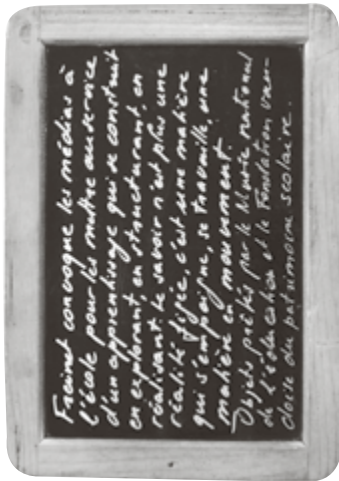 Freinet convoque les médias à
l'école pour les mettre au service
d'un apprentissage qui se construit
en explorant, en structurant, en
réalisant. Le savoir n'est plus une
réalité figée, c'est une matière
qui s'empoigne, se travaille, une
matière en mouvement.
Objets prêtés par le Musée national
de l'éducation et la Fondation vau-
doise du patrimoine scolaire.